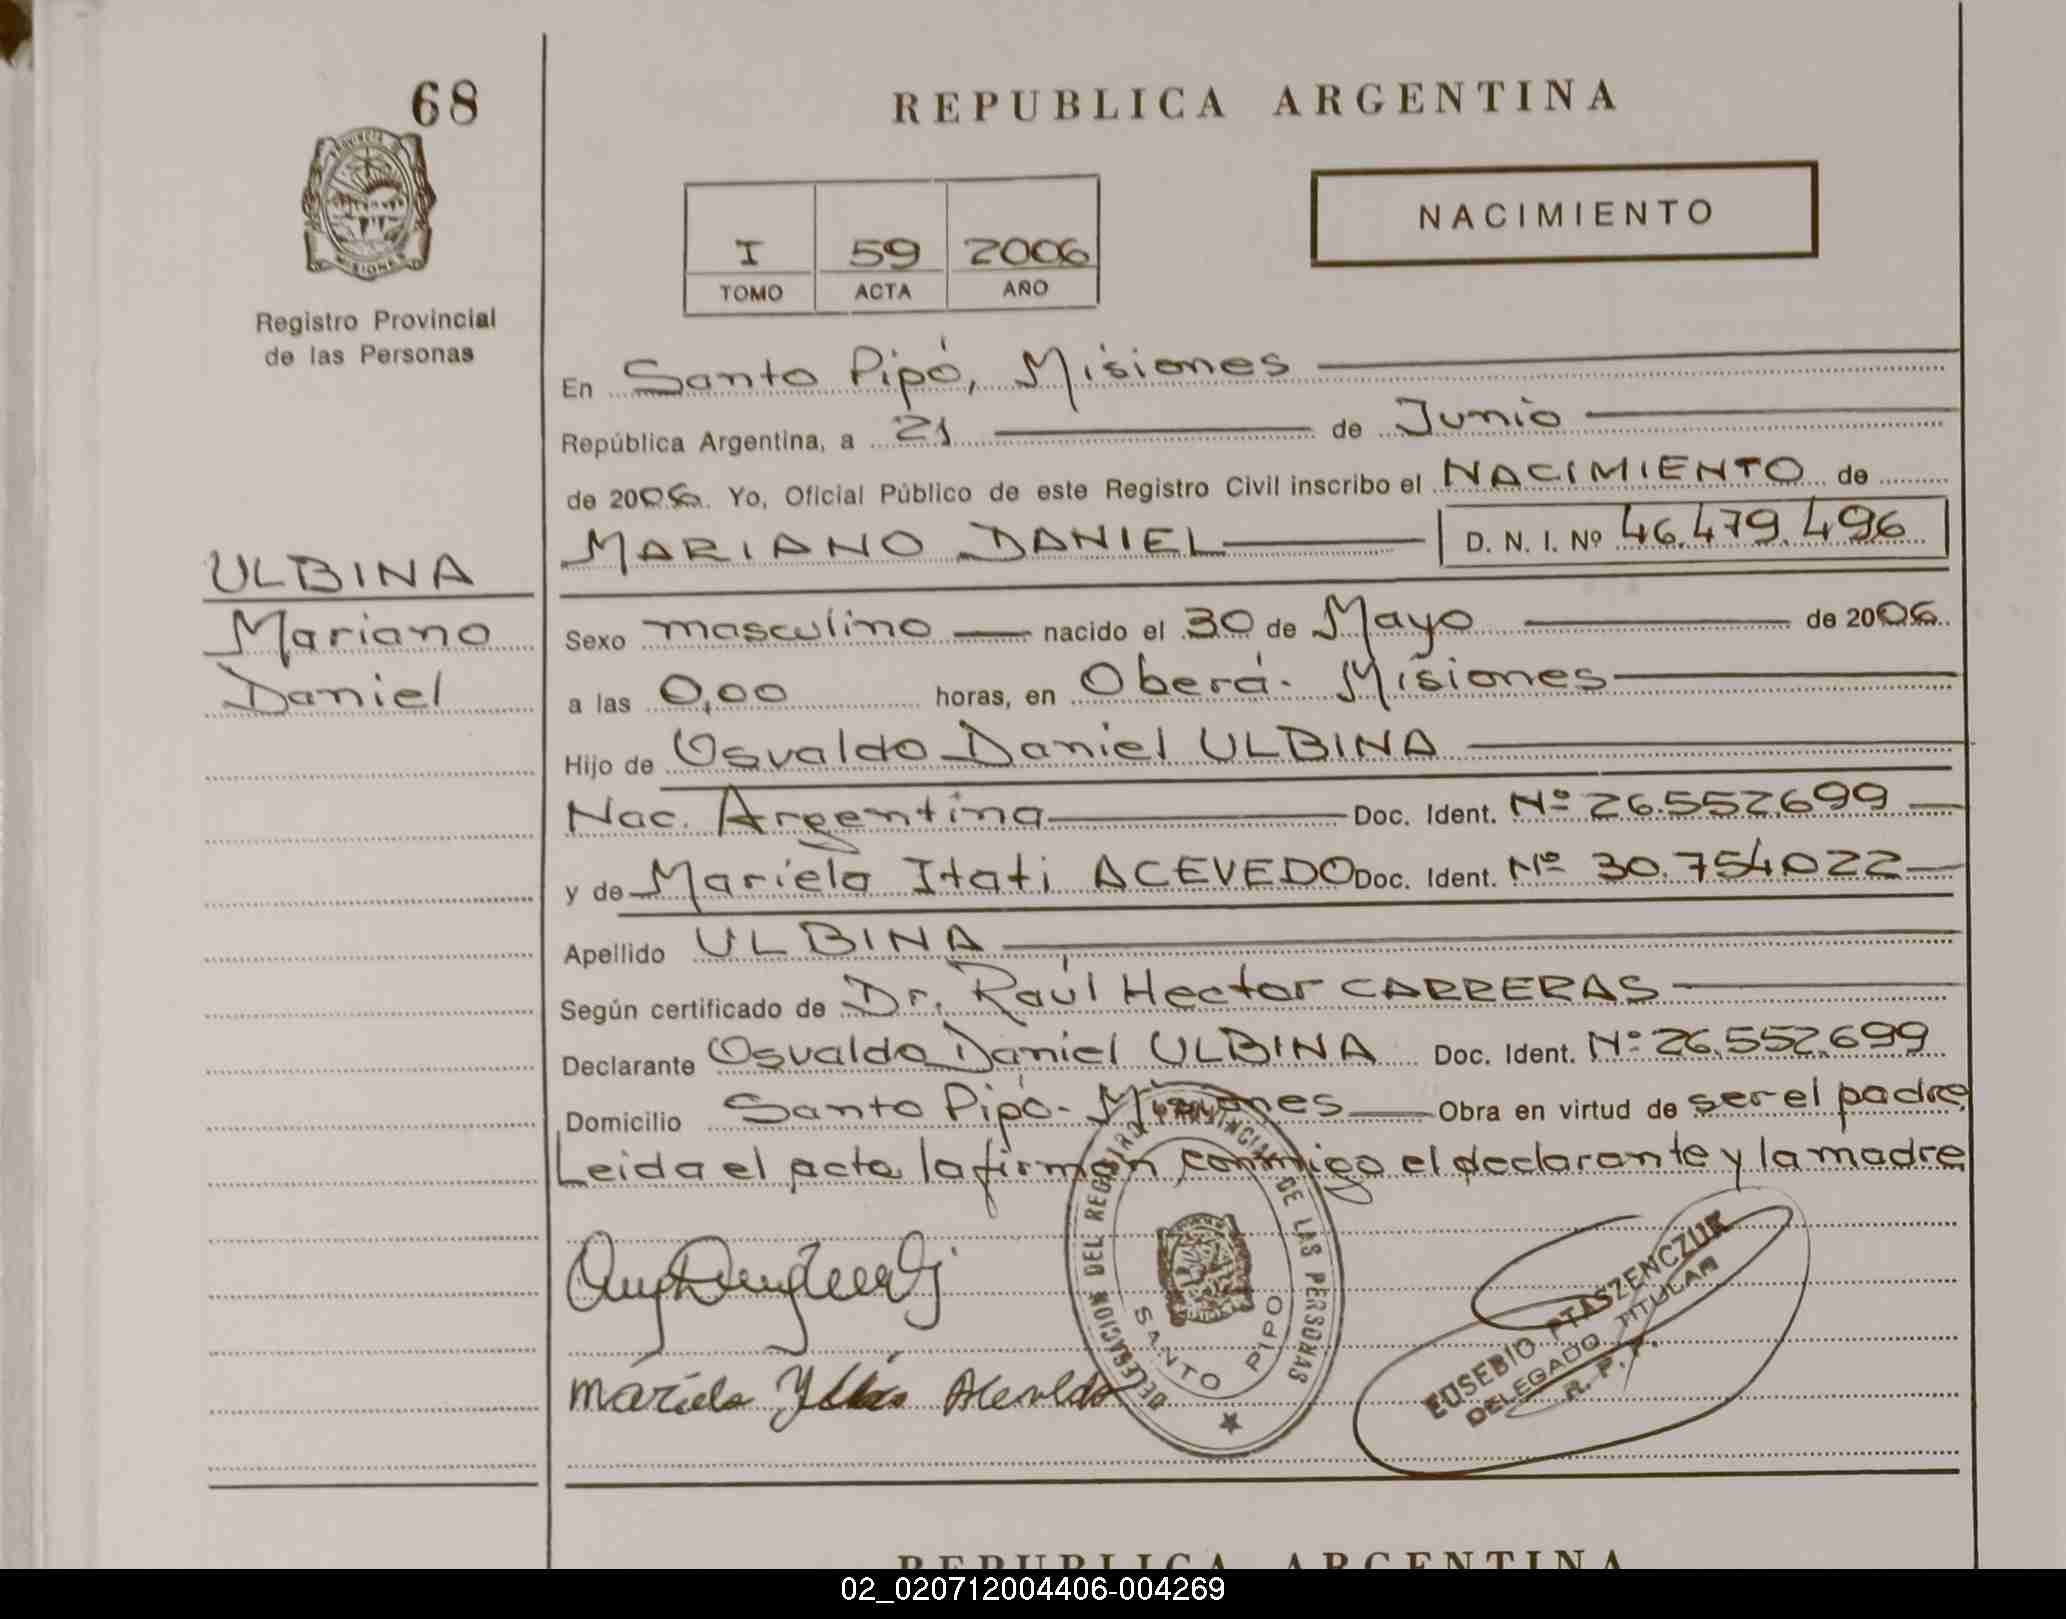 68
REPUBLICA ARGENTINA
PROVINCIA DE
MISIONES
NACIMIENTO
I 59 2006
TOMO ACTA AÑO
Registro Provincial
de las Personas
En Santo Pipó, Misiones
República Argentina, a 21 de Junio
de 2006. Yo, Oficial Público de este Registro Civil inscribo el NACIMIENTO de
MARIANO DANIEL D. N. I. Nº 46.479.496
ULBINA
Mariano
Daniel
Sexo masculino nacido el 30 de Mayo de 2006.
a las 0,00 horas, en Oberá - Misiones
Hijo de Osvaldo Daniel ULBINA
Nac. Argentina Doc. Ident. Nº 26.552.699
y de Mariela Itati ACEVEDO Doc. Ident. Nº 30.754.022
Apellido ULBINA
Según certificado de Dr. Raúl Hector CARRERAS
Declarante Osvaldo Daniel ULBINA Doc. Ident. Nº 26.552.699
Domicilio Santo Pipó - Misiones Obra en virtud de ser el padre
Leida el acta, la firman conmigo el declarante y la madre
DELEGACION DEL REGISTRO PROVINCIAL DE LAS PERSONAS
SANTO PIPO
EUSEBIO PTASZENCZUK
DELEGADO TITULAR
R. P. P.
Mariela Acevedo
REPUBLICA ARGENTINA
02_020712004406-004269